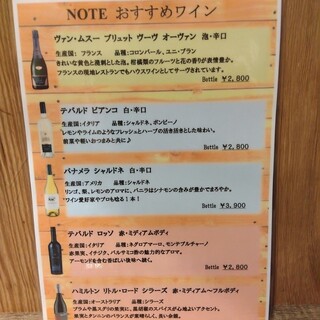 NOTE おすすめワイン
ヴァン・ムスー ブリュット ウーヴ オーヴァン 泡・辛口
生産国：フランス 品種：コロンバール、ユニ・ブラン
きれいな黄色と溌剌とした泡。柑橘類のフルーツと花の香りが表情豊か。
フランスの現地レストランでもハウスワインとしてサーヴされています。
Bottle ￥2,800
テバルド ビアンコ 白・辛口
生産国：イタリア 品種：シャルドネ、ボンビーノ
レモンやライムのようなフレッシュとハーブの活き活きとした味わい。
前菜や軽いおつまみと共に♪
Bottle ￥2,800
パナメラ シャルドネ 白・辛口
生産国：アメリカ 品種：シャルドネ
リンゴ、梨、レモンのアロマに、バニラはシナモンの含みが豊かでまろやか。
ワイン愛好家やプロも唸る1本！
Bottle ￥3,900
テバルド ロッソ 赤・ミディアムボディ
生産国：イタリア 品種：ネグロアマーロ、モンテプルチャーノ
赤果実、イチジク、バルサミコ酢の魅力的なアロマ。
アーモンドを含む香ばしい後味へ続く。
Bottle ￥2,800
ハミルトン リトル・ロード シラーズ 赤・ミディアム〜フルボディ
生産国：オーストラリア 品種：シラーズ
プラムや黒スグリの果実に、黒胡椒のスパイスが心地よいアクセント。
果実とタンニンのバランスが素晴らしく、長い余韻。